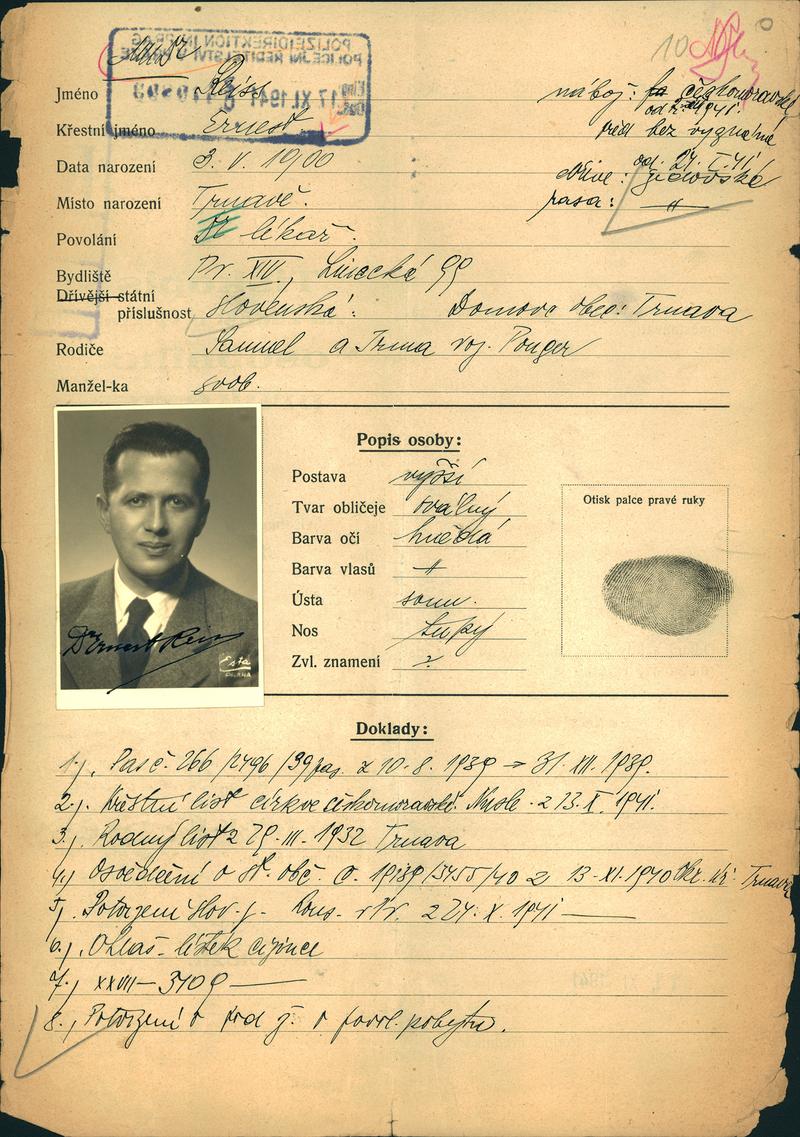 POLIZEIDIREKTION IN PRAG
POLICEJNÍ ŘEDITELSTVÍ
17. XI. 1941
MUDr
Jméno Reiss
Křestní jméno Ernest
Data narození 3. V. 1900
Místo narození Trnavě.
Povolání lékař.
Bydliště Pr. XIV, Linecká 99
Dřívější státní
příslušnost Slovenská: Domov. obec: Trnava
Rodiče Samuel a Irma roz. Ponger
Manžel-ka svob.
nábož: českomoravské
od 1941.
před bez vyznání
od 24. I. 41
dříve: židovské
rasa: "
Popis osoby:
Postava vyšší
Tvar obličeje oválný
Barva očí hnědá
Barva vlasů "
Ústa soum.
Nos
Zvl. znamení
Otisk palce pravé ruky
Dr Ernest Reiss
Doklady:
1.) Pas č. 266/2496/39 z 10. 8. 1939 → 31. XII. 1939.
2.) Křestní list církve českomoravské. Nusle z 1941.
3.) Rodný list z 29. III. 1932 Trnava
4.) Osvědčení o st. obč. z 13. XI. 1940 Okr. Trnava
5.) Potvrzení slov. X. 1941
6.) Ohlaš. lístek cizince
7.) XXVII — 3109
8.) Potvrzení o o povol. pobytu.